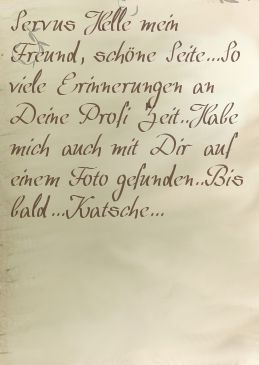 Servus Helle mein
Freund, schöne Seite...So
viele Erinnerungen an
Deine Profi Zeit..Habe
mich auch mit Dir auf
einem Foto gefunden..Bis
bald...Katsche...